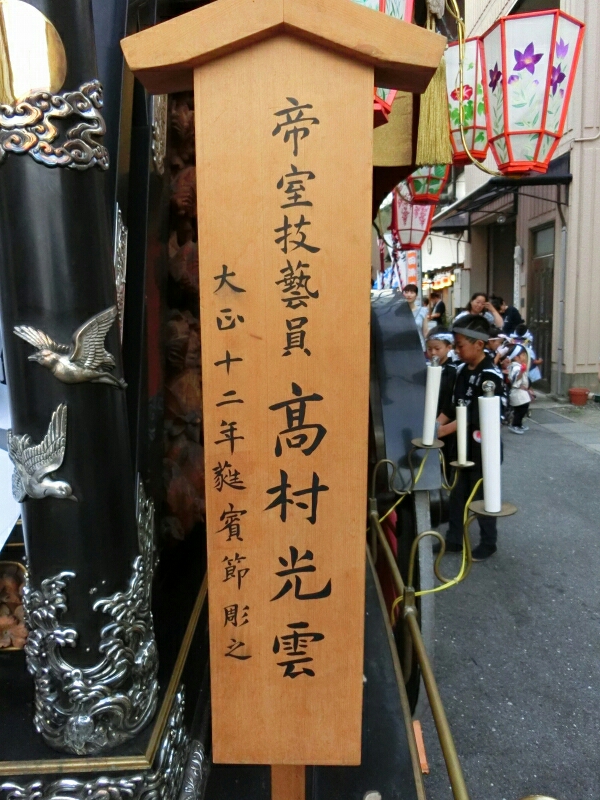 帝室技藝員 髙村光雲
大正十二年蕤賓節彫之